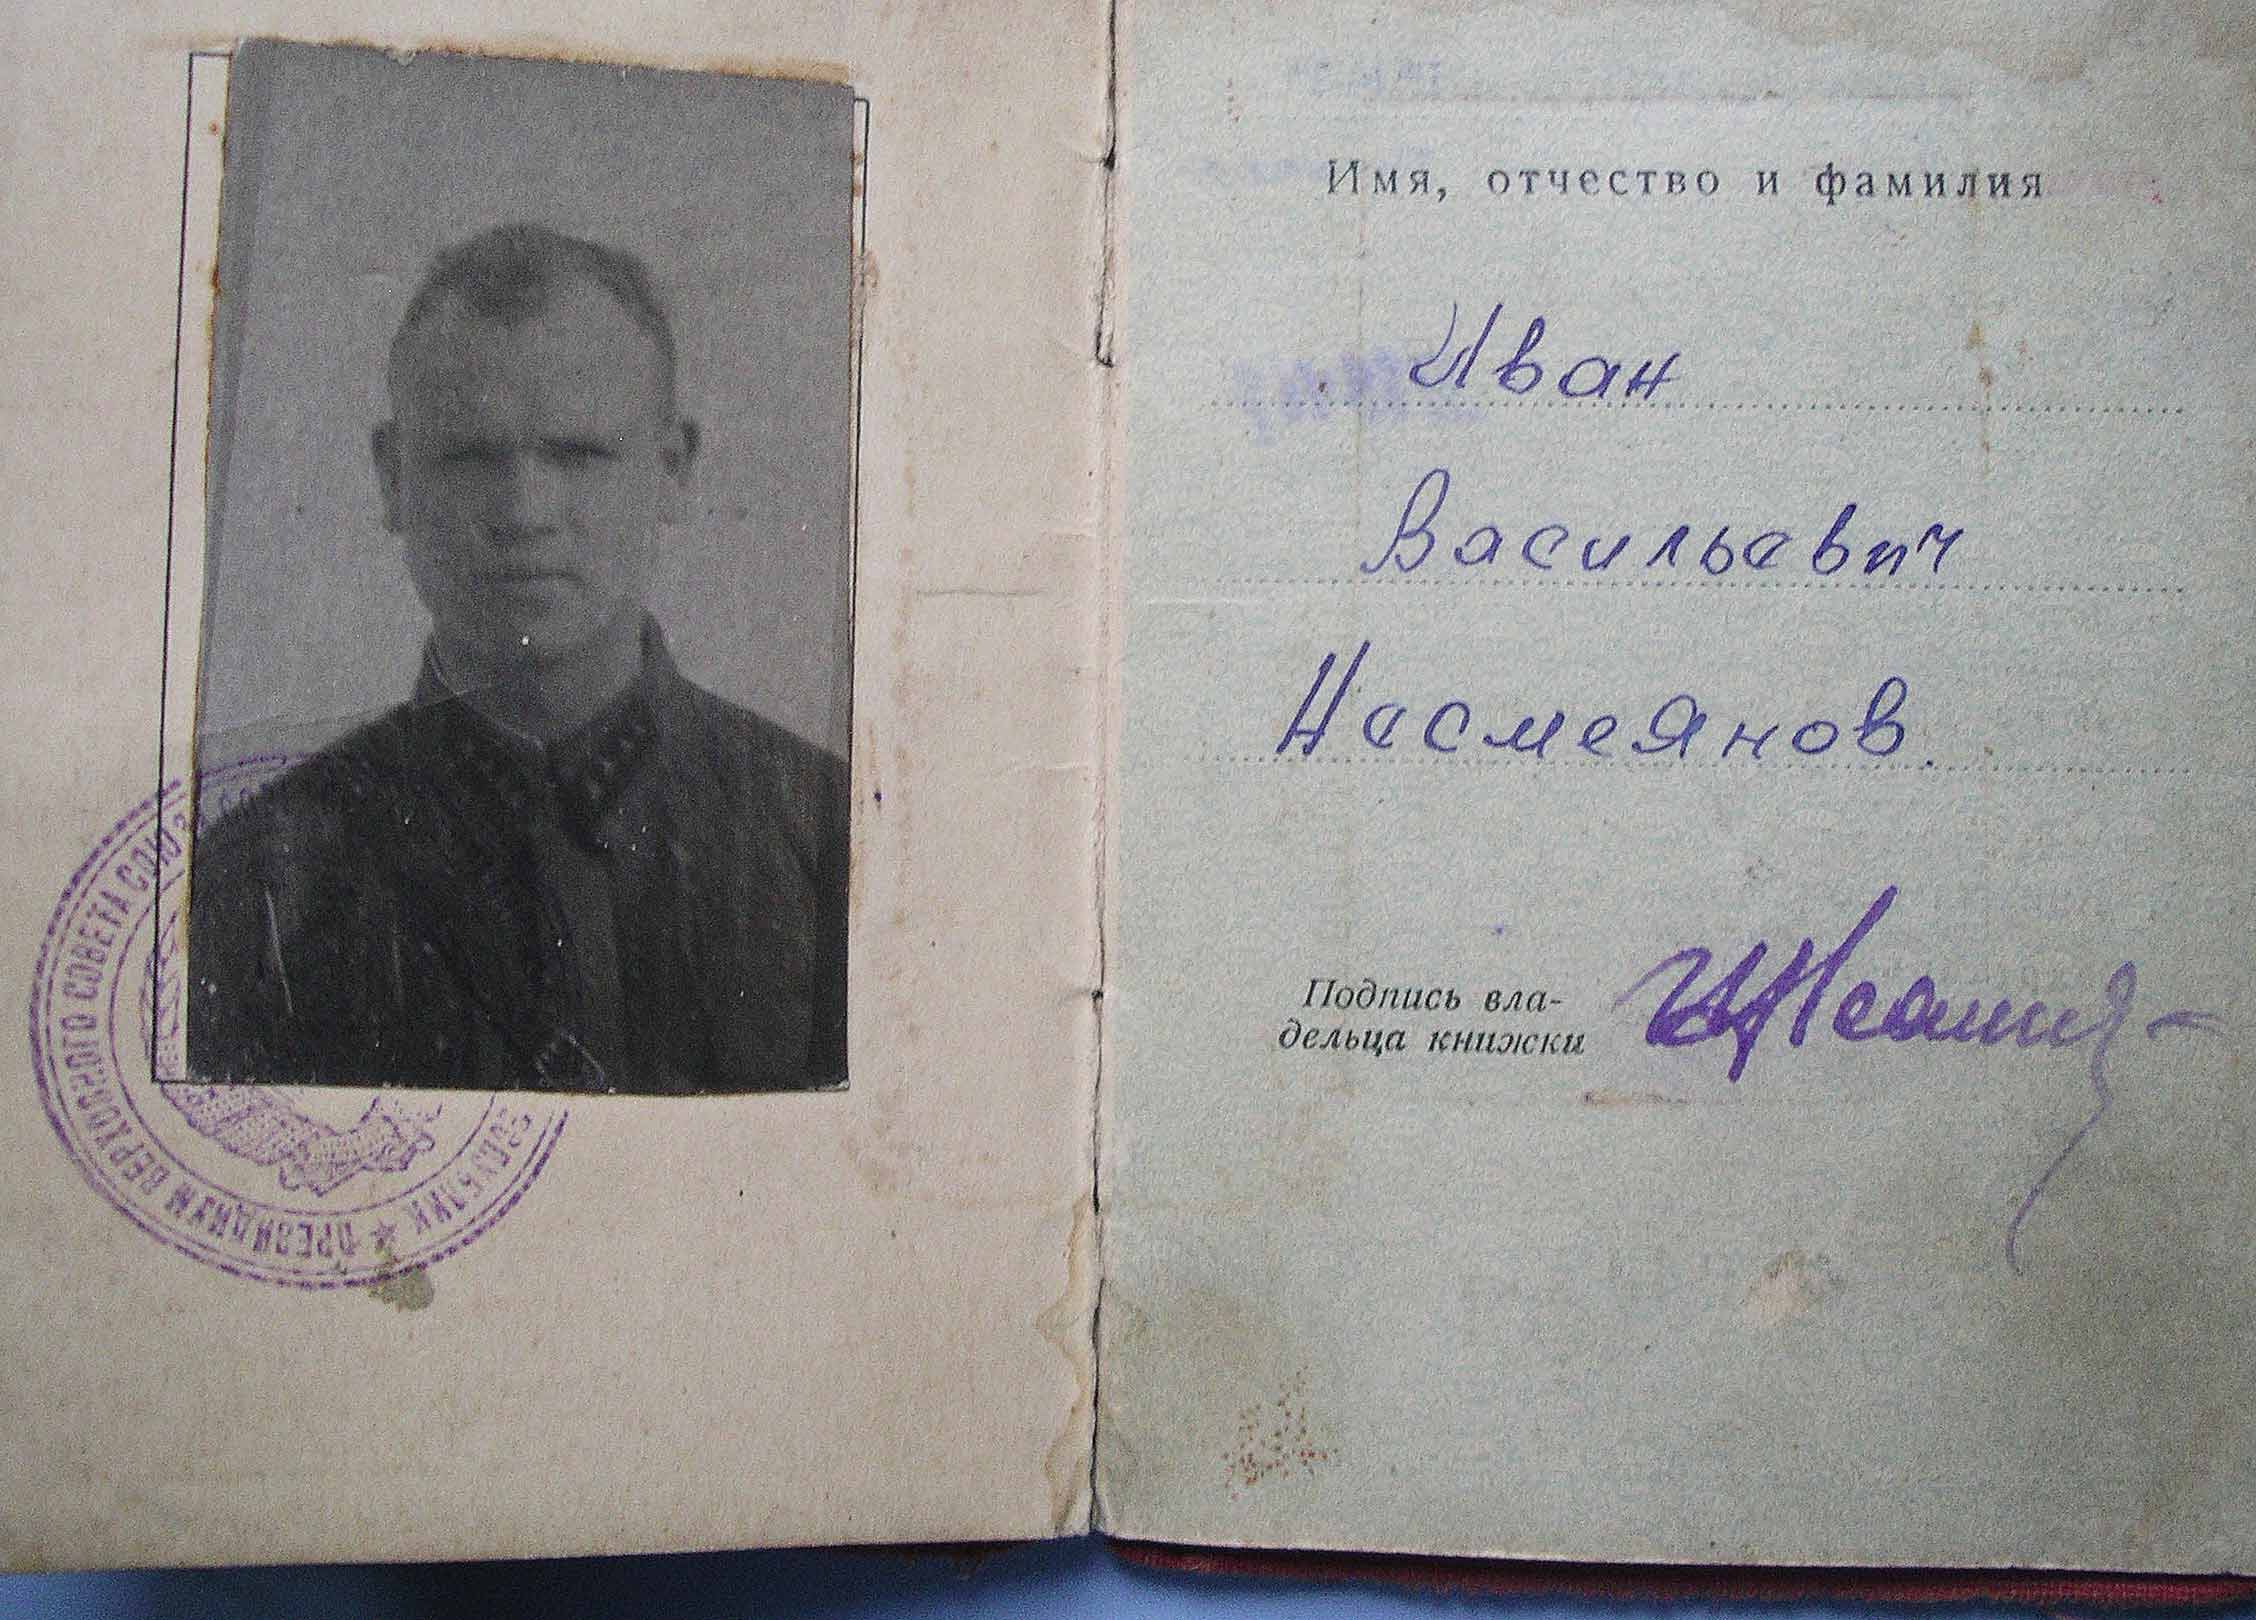 ПРЕЗИДИУМ ВЕРХОВНОГО СОВЕТА СОЮЗА
РЕСПУБЛИК
Имя, отчество и фамилия
Иван
Васильевич
Несмеянов.
Подпись вла-
дельца книжки